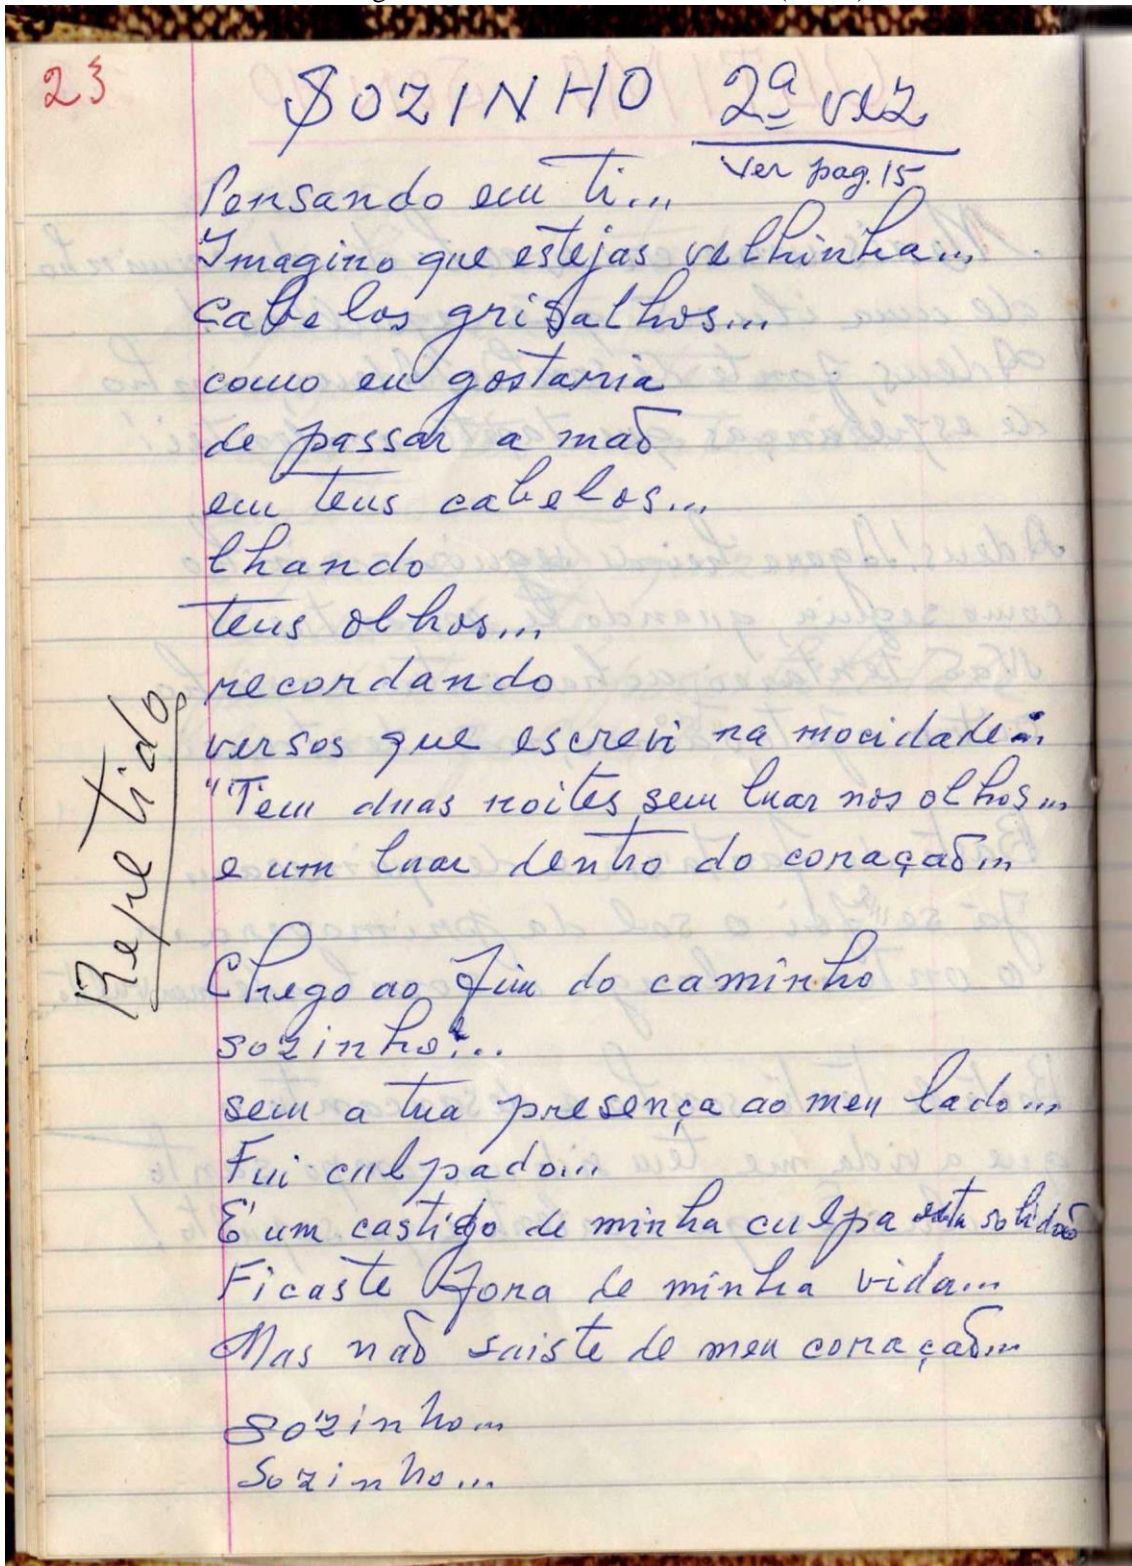 23
SOZINHO 2ª vez
ver pag. 15
Pensando em ti...
Imagino que estejas velhinha...
cabelos grisalhos...
como eu gostaria
de passar a mão
em teus cabelos...
lhando
teus olhos...
recordando
versos que escrevi na mocidade...
"Tem duas noites sem luar nos olhos...
e um luar dentro do coração...
Repetido
Chego ao fim do caminho
sozinho!...
sem a tua presença ao meu lado...
Fui culpado...
É um castigo de minha culpa esta solidão
Ficaste fora de minha vida...
Mas não saiste de meu coração...
Sozinho...
Sozinho...